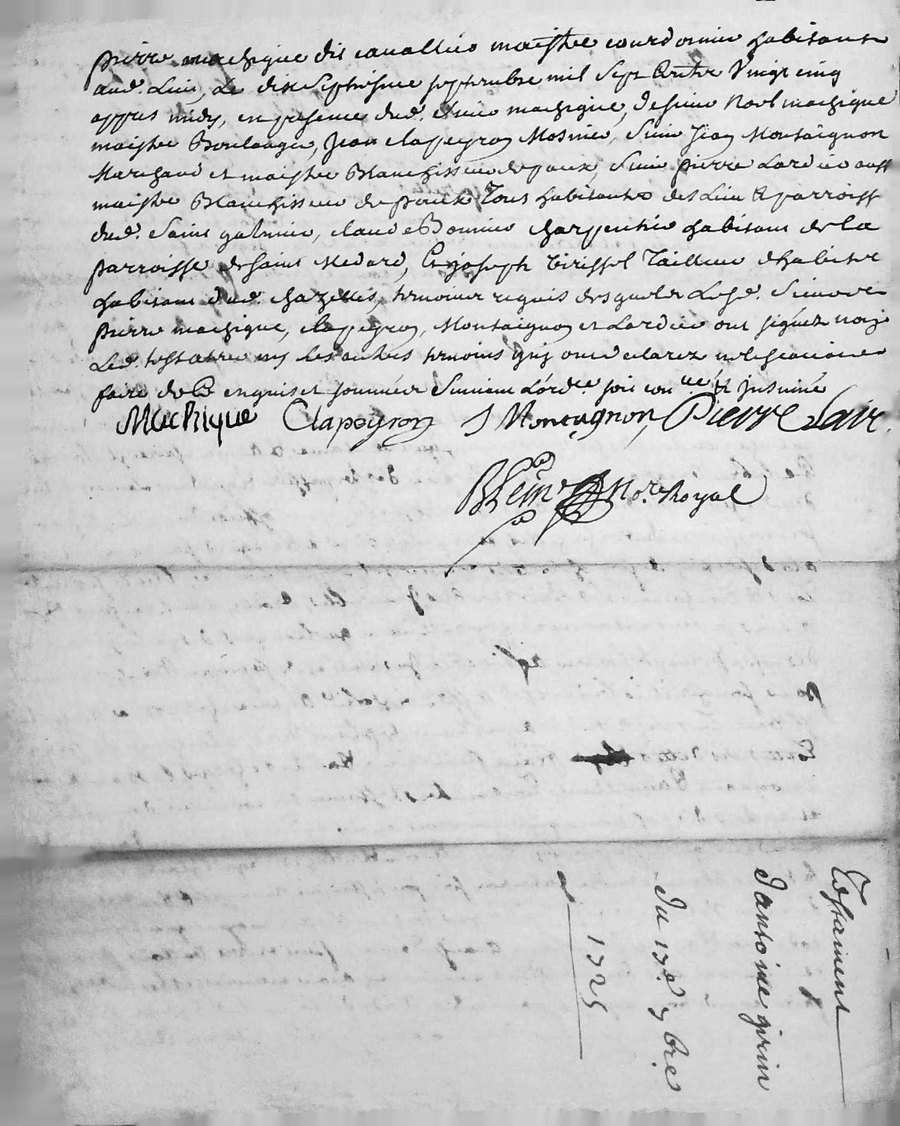 pierre machique dit cavallier maistre courdonnier habitant
aud. Lieu, Le dixseptiesme septembre mil sept cents vingt cinq
appres midy, en presence dud. pierre machique, de sieur Noel machique
maistre Boulanger, Jean Clapeyron Mosnier, sieur Jean Montaignon
Marchand et maistre Blanchisseur de peaux, sieur pierre Lardier aussy
maistre Blanchisseur de peaux Tous habitants des Lieu & parroisse
dud. Saint galmier, claude Bonnier charpentier habitant de la
parroisse de saint Medard, Et joseph Tailleur d'habits
habitant dud. chazelles, temoins requis desquels Led. sieur
pierre machique, clapeyron, Montaignon et Lardier ont signez non
Led. testateur ny Les autres temoins quy ont declarez ne scavoir
faire de ce enquis et sommez suivant L'ord.ce soit con.llé et insinué
Machique Clapeyron J Montagnon Pierre Lair
No.re Royal
Testament
d'antoine girin
du 17.e 7bre
1725